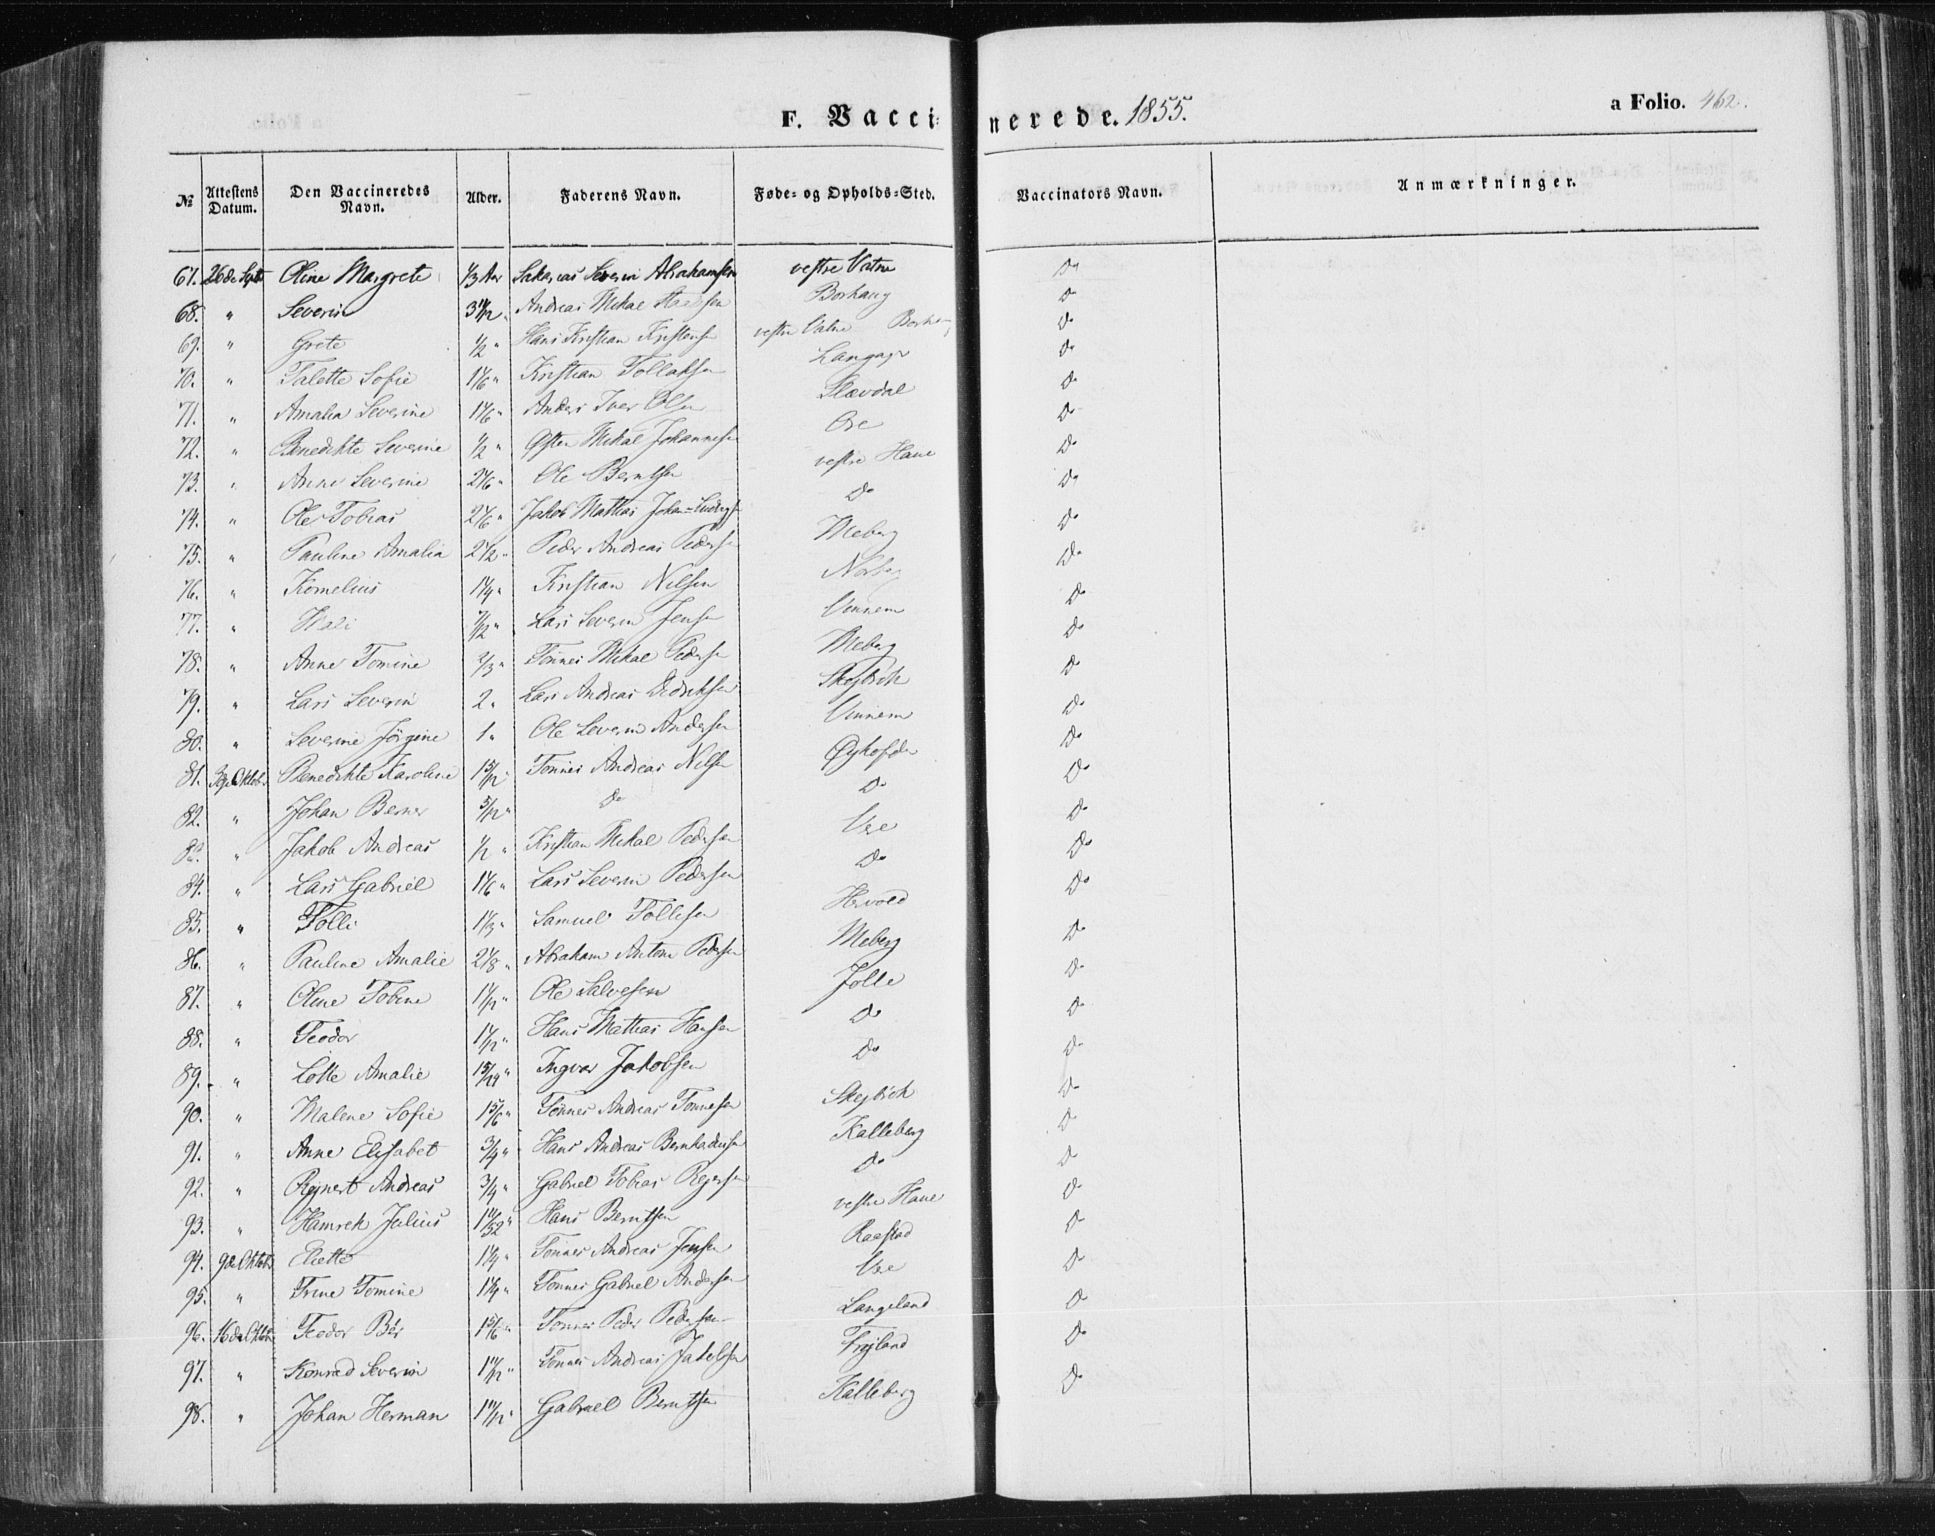 a Folio. 462.
F. Vaccinerede. 1855.
№ Attestens Datum. Den Vaccineredes Navn. Alder. Faderens Navn. Føde- og Opholds-Sted. Vaccinators Navn. Anmærkninger.
67. 26de Septb Oline Margrete 1/3 Aar Sakarias Severin Abrahamsen vestre Vatne Do
68. " Severin Andreas Mikal Borhaug Do
69. " Grete 1/2 " Hans Kristian Kristensen vestre Vatne Do
70. " Talette Sofie 1 1/6 " Kristian Tollaksen Langager Do
71. " Amalia Severine 1 1/6 " Anders Iver Olsen Slevdal Do
72. " Benedikte Severine 1/2 " Østen Mikal Johannesen Ore Do
73. " Anne Severine 2 1/6 " Ole Berntsen vestre Haue Do
74. " Ole Tobias 2 1/6 " Jakob Mathias Do Do
75. " Pauline Amalia 2 1/2 " Peder Andreas Pedersen Meberg Do
76. " Kornelius 1 1/4 " Kristian Nilsen Do
77. " Mali 7/12 " Lars Severin Jensen Vinnem Do
78. " Anne Tomine 2/3 " Tönnes Mikal Pedersen Meberg Do
79. " Lars Severin 2 " Lars Andreas Didriksen Skejbrok Do
80. " Severine Jörgine 1 " Ole Severin Andersen Vinnem Do
81. 3dje Oktob. Benedikte Karoline 1 5/12 " Tönnes Andreas Nilsen Do
82. " Johan Berner 5/12 " Do Do Do
83. " Jakob Andreas 1/2 " Kristian Mikal Pedersen Vre Do
84. " Lars Gabriel 1 1/6 " Lars Severin Pedersen Do Do
85. " Tolli 1 1/3 " Samuel Tollisen Hervold Do
86. " Pauline Amalie 2 1/8 " Abraham Anton Pedersen Meberg Do
87. " Oline Tobine 1 1/12 " Ole Salvesen Jolle Do
88. " Teodor 1 1/12 " Hans Mathias Hansen Do Do
89. " Lotte Amalie 1 5/24 " Ingvar Jakobsen Do Do
90. " Malene Sofie 1 5/6 " Tönnes Andreas Tönnesen Skejbrok Do
91. " Anne Elisabet 3/4 " Hans Andreas Bernhardsen Kalleberg Do
92. " Rejnert Andreas 3/4 " Gabriel Tobias Rejersen Do Do
93. " Hamrek Julius Hans Berntsen vestre Haue Do
94. 9de Oktob. Eliette 1 1/4 " Tönnes Andreas Jensen Raastad Do
95. " Trine Tomine 1 1/4 " Tönnes Gabriel Andersen Vre Do
96. 16de Oktob. Teodor Bär 1 5/6 " Tönnes Peder Pedersen Langeland Do
97. " Konrad Severin 1 11/12 " Tönnes Andreas Jakobsen Frejland Do
98. " Johan Herman 1 11/12 " Gabriel Berntsen Kalleberg Do